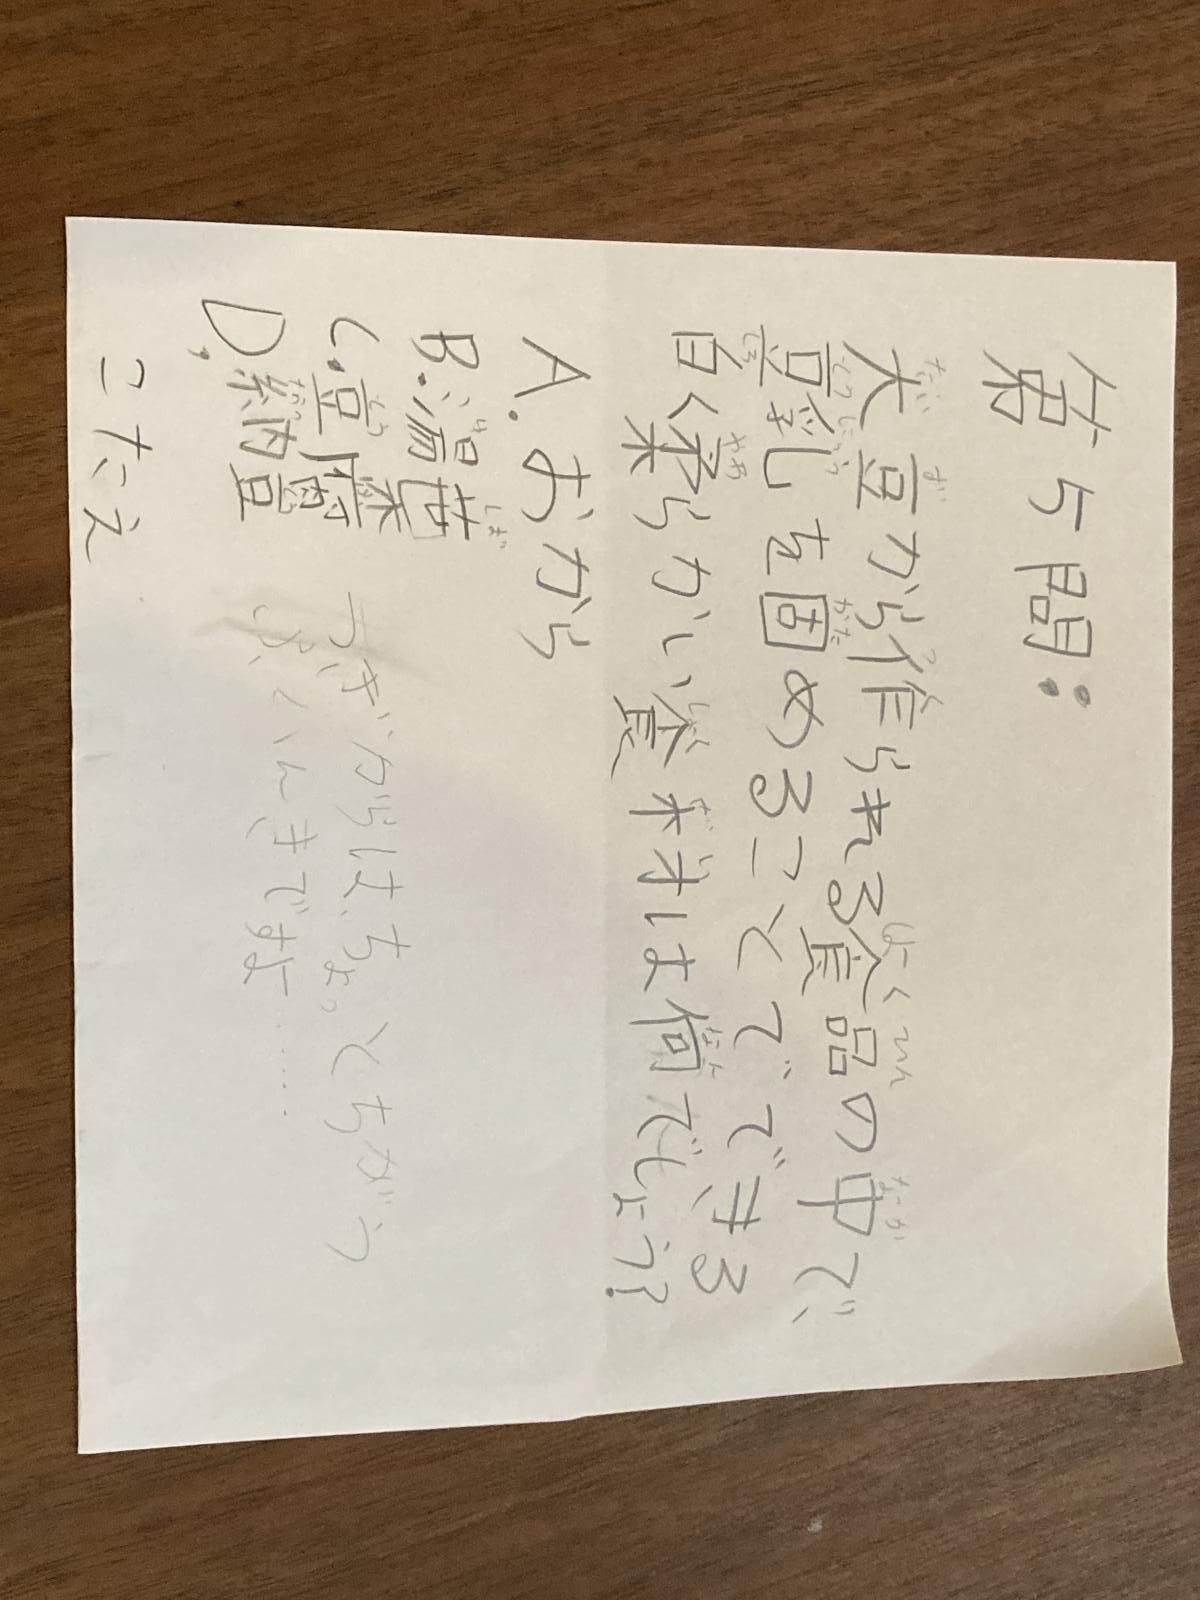 第5問:
大豆から作られる食品の中で、
豆乳を固めることでできる
白く柔らかい食材は何でしょう?
A. おから
B. 湯葉
C. 豆腐
D. 納豆
からは、ちょっとちがう
こたえ